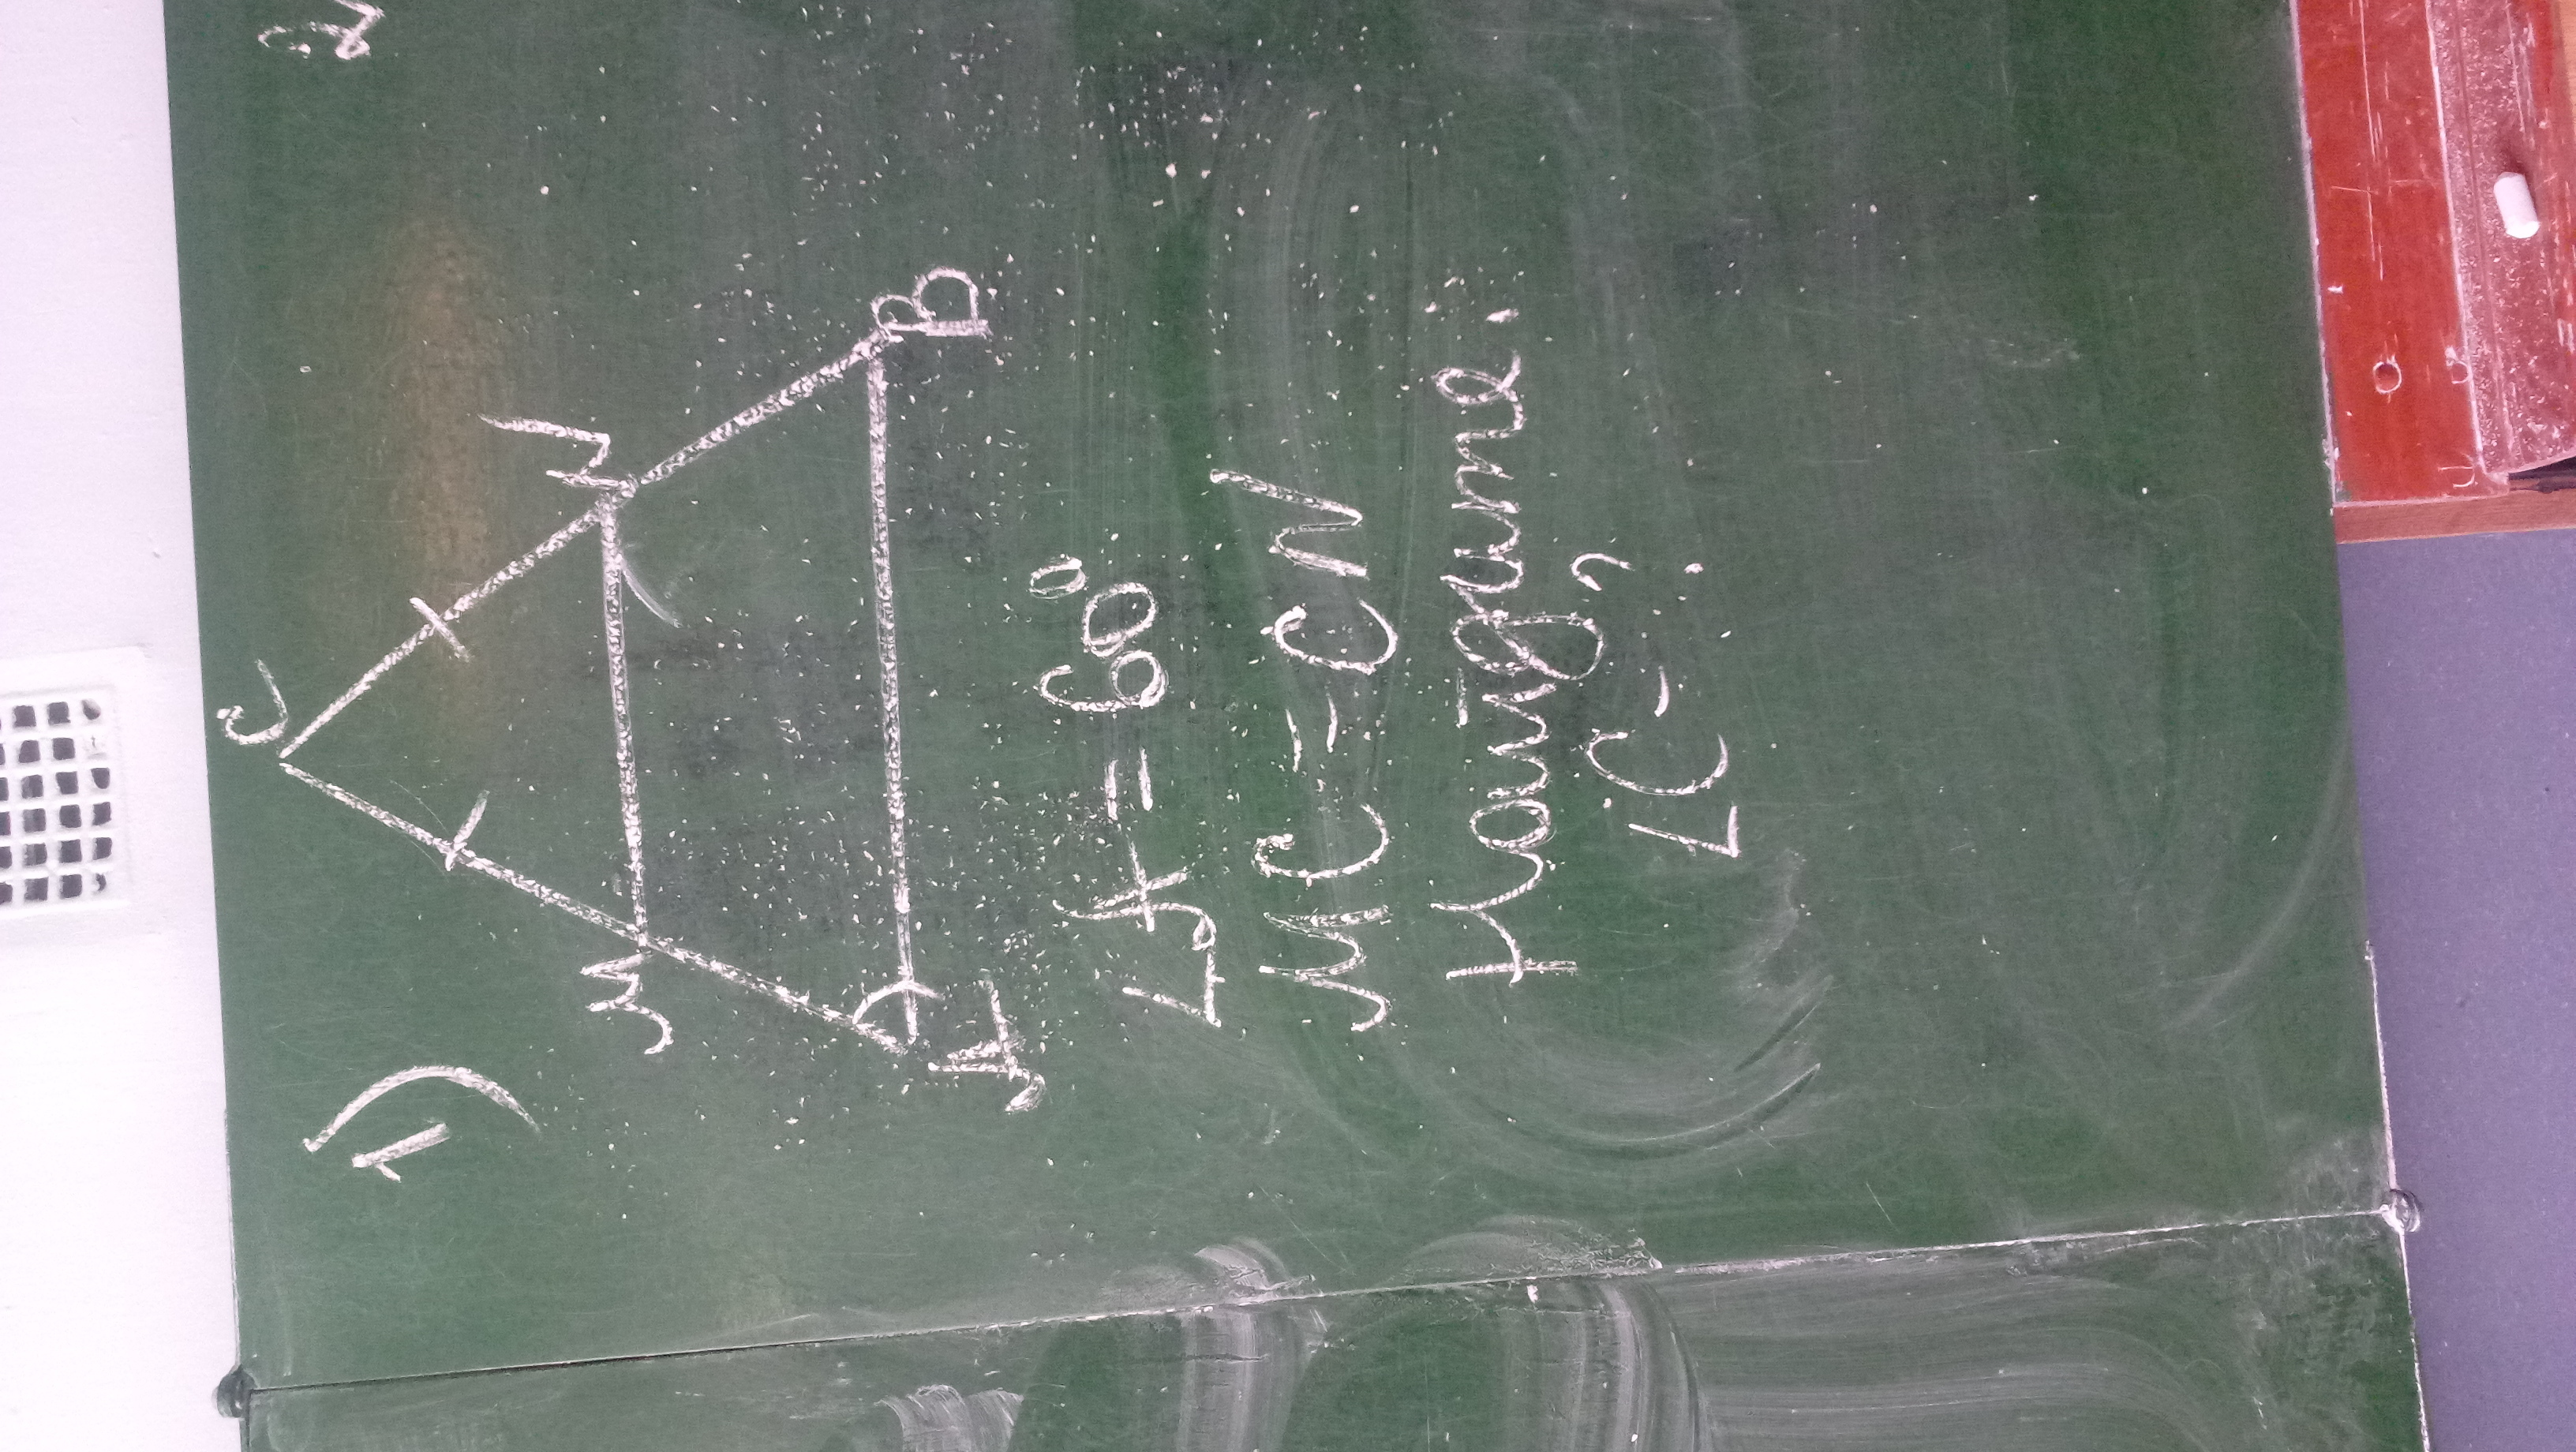 1)
C
M
N
A
B
∠A = 60°
MC = CN
Найдите:
∠C - ?